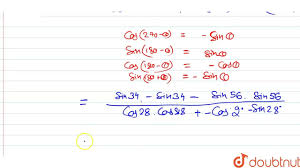 Cos(270-θ) = -Sinθ
Sin(180-θ) = Sinθ
Cos(180-θ) = -Cosθ
= Sin34 . -Sin34 - Sin56 . Sin56
Cos28 . Cos88 + -Cos2° . -Sin28°
doubtnut